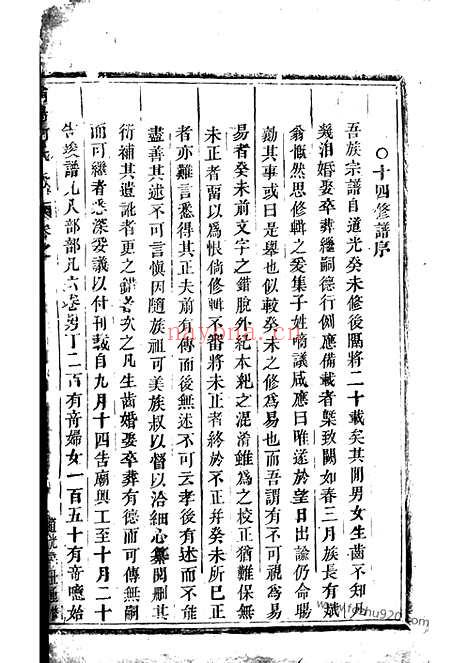 〇十四修譜序
吾族宗譜自道光癸未修後隔將二十載矣其閒男女生齒不知凡
幾洎婚娶卒葬繼嗣德行例應備載者槩致闕如春三月族長有斌
翁慨然思修輯之爰集子姓嘀議咸應曰唯遂於望日出諭仍命暘
勷其事或曰是舉也似較癸未之修爲易也而吾謂有不可視爲易
易者癸未前文字之錯脫外紀木紀之混淆雖爲之校正猶難保無
未正者畱以爲恨倘修輯不審將未正者終於不正并癸未所已正
者亦難言悉得其正夫前有傳而後無述不可云孝後有述而不能
盡善其述不可言愼因隨族祖可美族叔以督以洽細心纂閱刪其
衍補其遺訛者更之錯者次之凡生齒婚娶卒葬有德而可傳無嗣
而可繼者悉深妥議以付刊載自九月十四告廟興工至十月二十
告竣譜凡八部部凡六卷男丁二百有奇婦女一百五十有奇噫始
www.foshu920.com